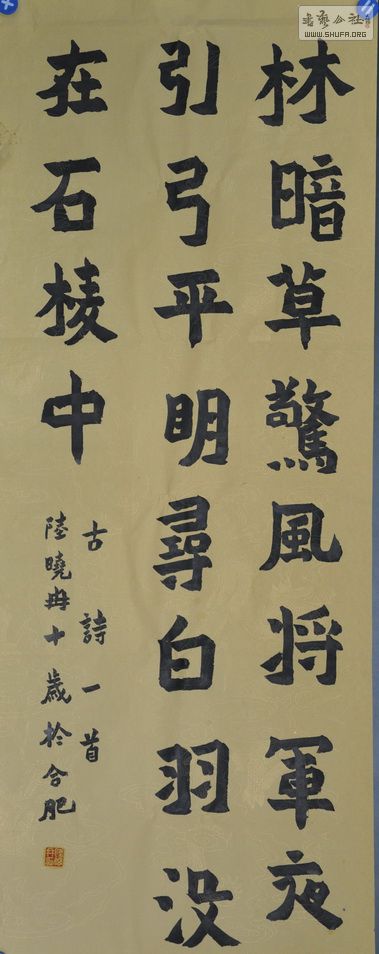 林暗草驚風将軍夜
引弓平明尋白羽没
在石棱中
古詩一首
陸曉冉十歲於合肥
書藝公社
WWW.SHUFA.ORG